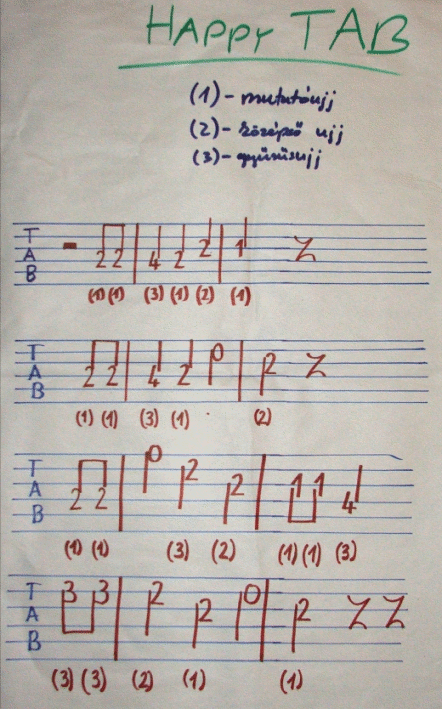 HAPPY TAB
(1) - mutatóujj
(2) - középső ujj
(3) - gyűrűsujj
T A B - 2 2 4 2 2 1 Z
(1) (1) (3) (1) (2) (1)
T A B 2 2 4 2 0 2 Z
(1) (1) (3) (1) (2)
T A B 2 2 0 2 2 1 1 4
(1) (1) (3) (2) (1) (1) (3)
T A B 3 3 2 2 0 2 Z Z
(3) (3) (2) (1) (1)